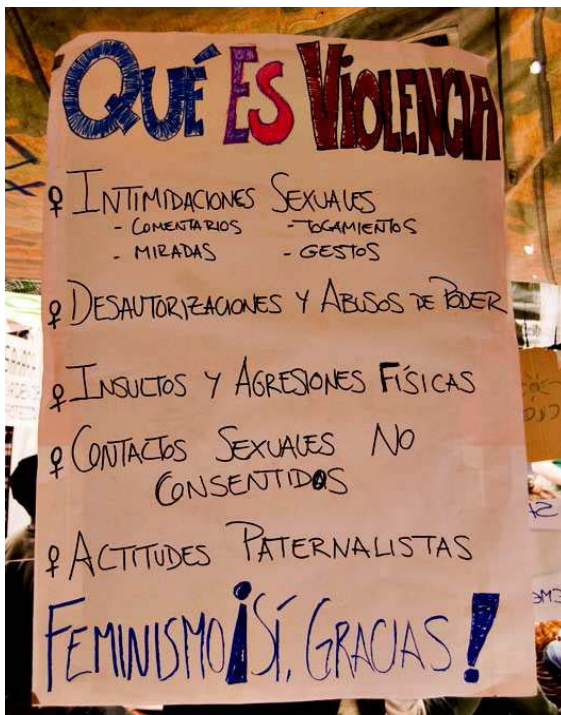 QUÉ ES VIOLENCIA
♀ INTIMIDACIONES SEXUALES
- COMENTARIOS - TOCAMIENTOS
- MIRADAS - GESTOS
♀ DESAUTORIZACIONES Y ABUSOS DE PODER
♀ INSULTOS Y AGRESIONES FÍSICAS
♀ CONTACTOS SEXUALES NO
CONSENTIDOS
♀ ACTITUDES PATERNALISTAS
FEMINISMO ¡SÍ, GRACIAS!